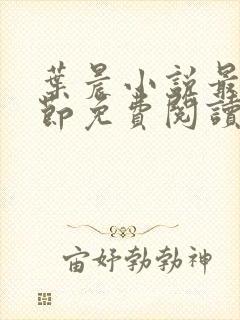 葉晨小說最
節免費閱讀
宙妤勃勃神